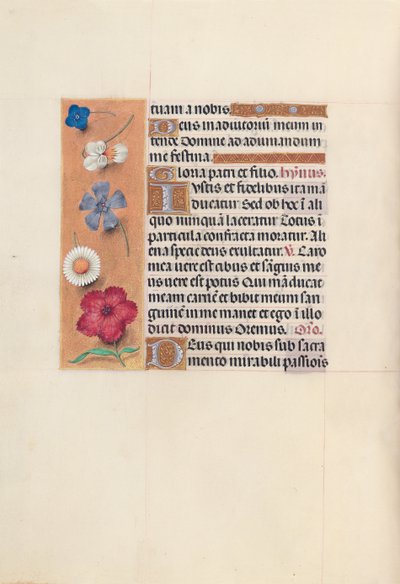 tuam a nobis.
Deus in adiutoriũ meum in
tende Domine ad adiuuandum
me festina.
Gloria patri et filio. Hymnus.
Iustis et fidelibus ita mã
ducatur Sed ob hoc ĩ ali
quo nunquã laceratur Totus ĩ
particula confracta moratur. Ali
ena specie deus exultatur. V. Caro
mea uere est cibus et sãguis me
us uere est potus Qui mãducat
meam carnẽ et bibit meum san
guinẽ in me manet et ego ĩ illo
dicit dominus Oremus. Oro.
Deus qui nobis sub sacra
mento mirabili passiõis